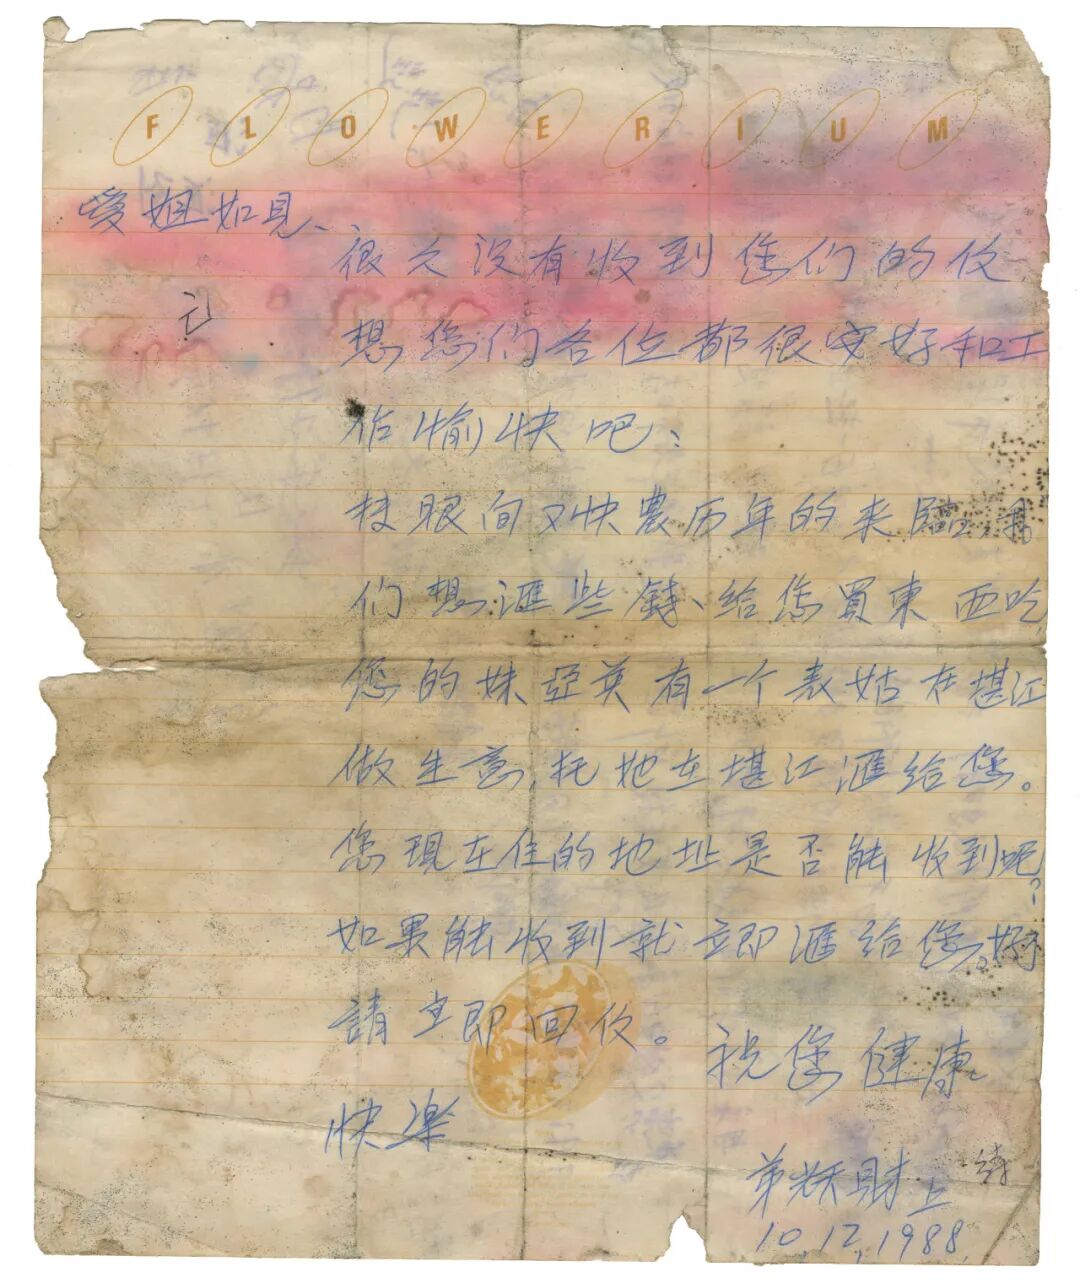 FLOWERIUM
愛姐如見、
很久没有收到您们的伩
想您们各位都很安好和工
作愉快吧、
转眼间又快農历年的来臨 我
们想滙些錢、给您買東西吃
您的妹亞英有一个表姑在堪江
做生意,托她在堪江滙给您。
您現在住的地址是否能收到呢?
如果能收到就立即滙给您。好
請立即回伩。祝您健康
快楽
弟 財上
10,12,1988